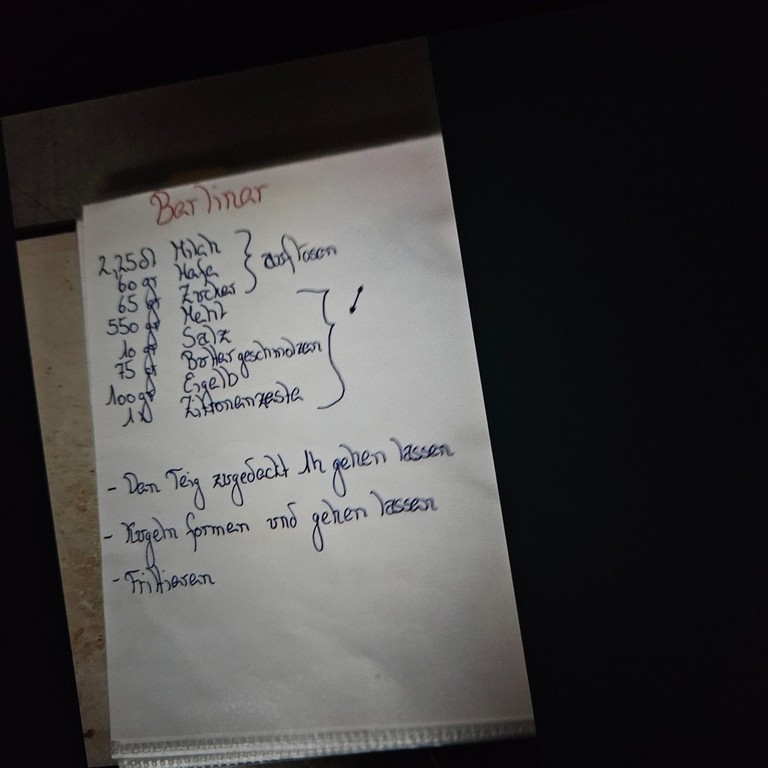 Berliner
2,25dl Milch } auflösen
60 gr Hefe
65 gr Zucker
550 gr Mehl
10 gr Salz
75 gr Butter geschmolzen
100gr Eigelb
1x Zitronenzeste
- Den Teig zugedeckt 1h gehen lassen
- Kugeln formen und gehen lassen
- Fritieren